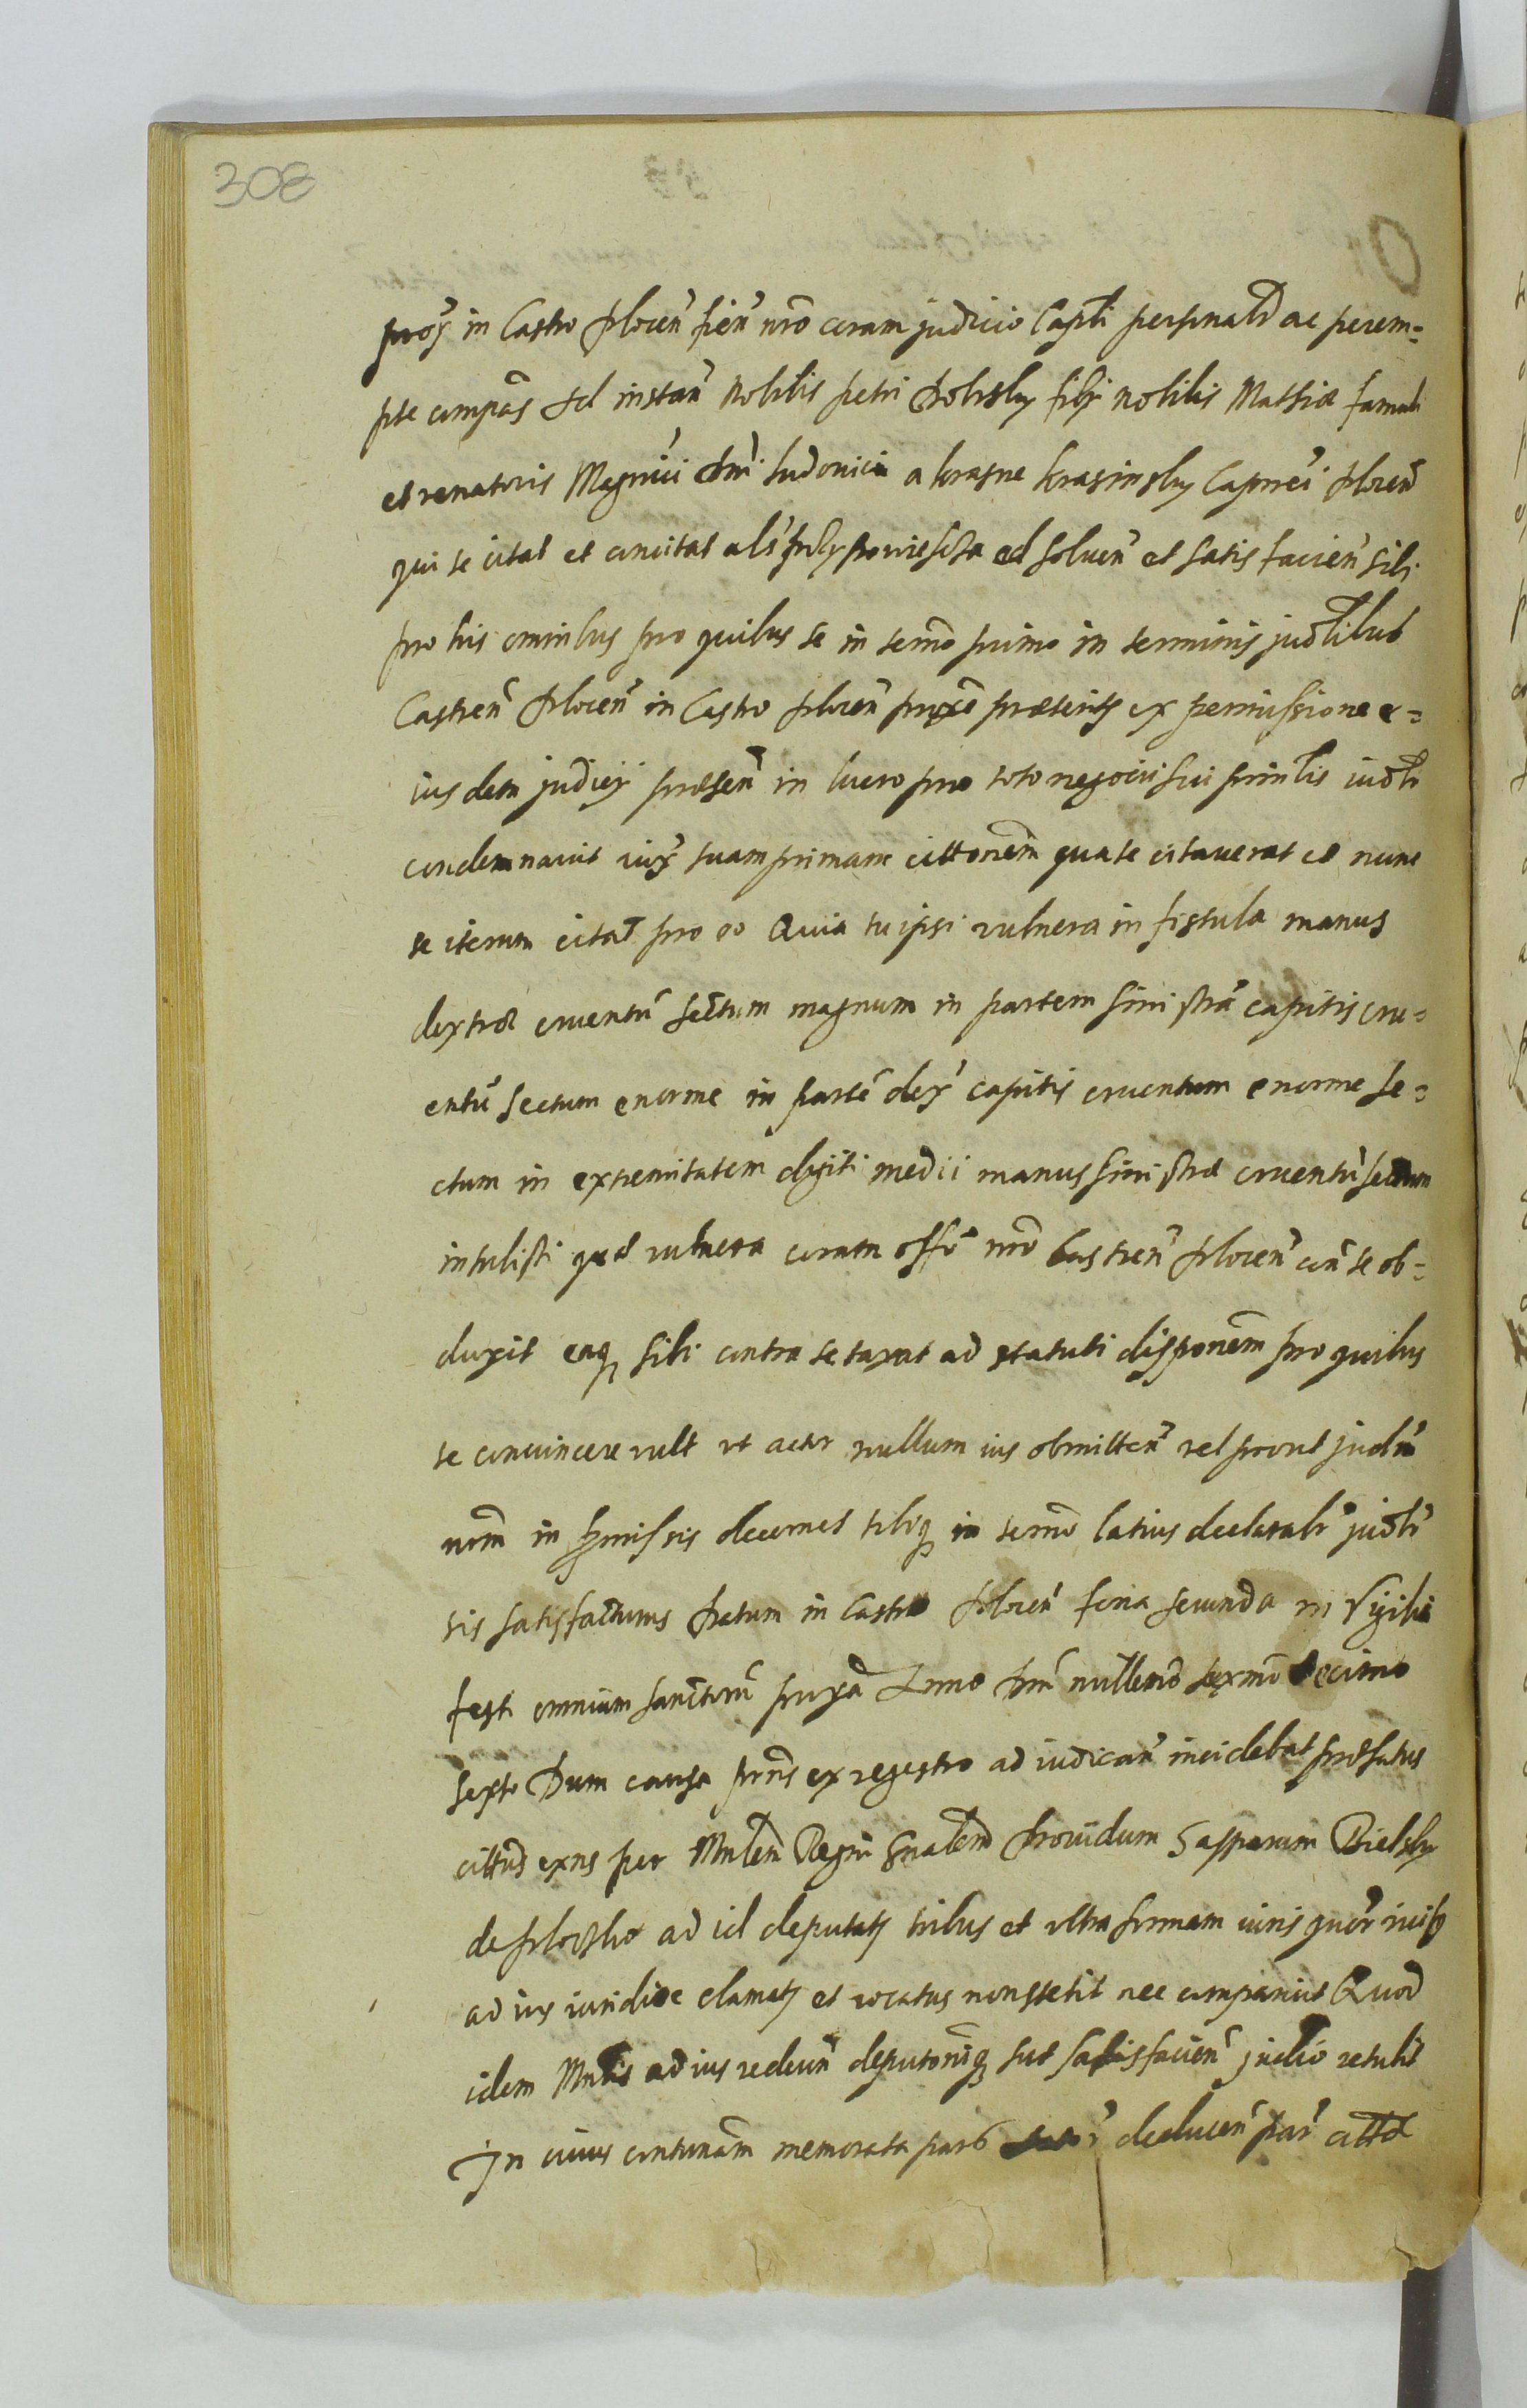 308
prox in Castro Plocen fien nro coram judicio Capli personalr ac perem=
pte compas Ad instan Nobilis Petri filij nobilis Mathiæ famuli
et venatoris Magnici Dni Ludouici a Krasne Krasinsky Capnei Plocen
qui te citat et concitat als przypowiescza ad soluen et satis facien sibi
pro his omnibus pro quibus te in termo primo in terminis judlibus
Castren Plocen in Castro Plocen proxe præteritis ex permissione e=
ius dem judicij præsen in lucro pro toto negocii sui prinlis iudlr
condemnauit iux suam primam cittonem qua te citauerat et nunc
te iterum citat pro eo Quia tu ipsi vulnera in fistula manus
dextræ cruentu sectum magnum in partem sinistra capitis cru=
entu sectum enorme in parte dex capitis cruentum enorme se=
ctum in extremitatem digiti medii manus sinistræ cruentu sectum
intulisti quæ vulnera coram offo nro Castren Plocen con te ob=
duxit eaq sibi contra te taxat ad statuti disponem pro quibus
te conuincere vult vt actor nullum ius obmitten vel prout judm
nrm in pmissis decernet tibiq in termo latius declarabr judlr
sis satisfacturus Datum in Castro Plocen feria secunda in Vigilia
festi omnium sanctoru proxa Anno Dni millemo sexmo decimo
sexto Dum causa prns ex regestro ad iudican incidebat præfatus
cittus exns per Mnlem Regni Gnalem Prouidum Gasparum Bielsky
de Ploczko ad id deputatu tribus et vltra formam iuris quor iuib
ad ius iuridice clamatus et vocatus non stetit nec comparuit Quod
idem Mnlis ad ius redeun deputoniq suæ satisfacien judio retulit
In cuius contumam memorata pars deducen par citta